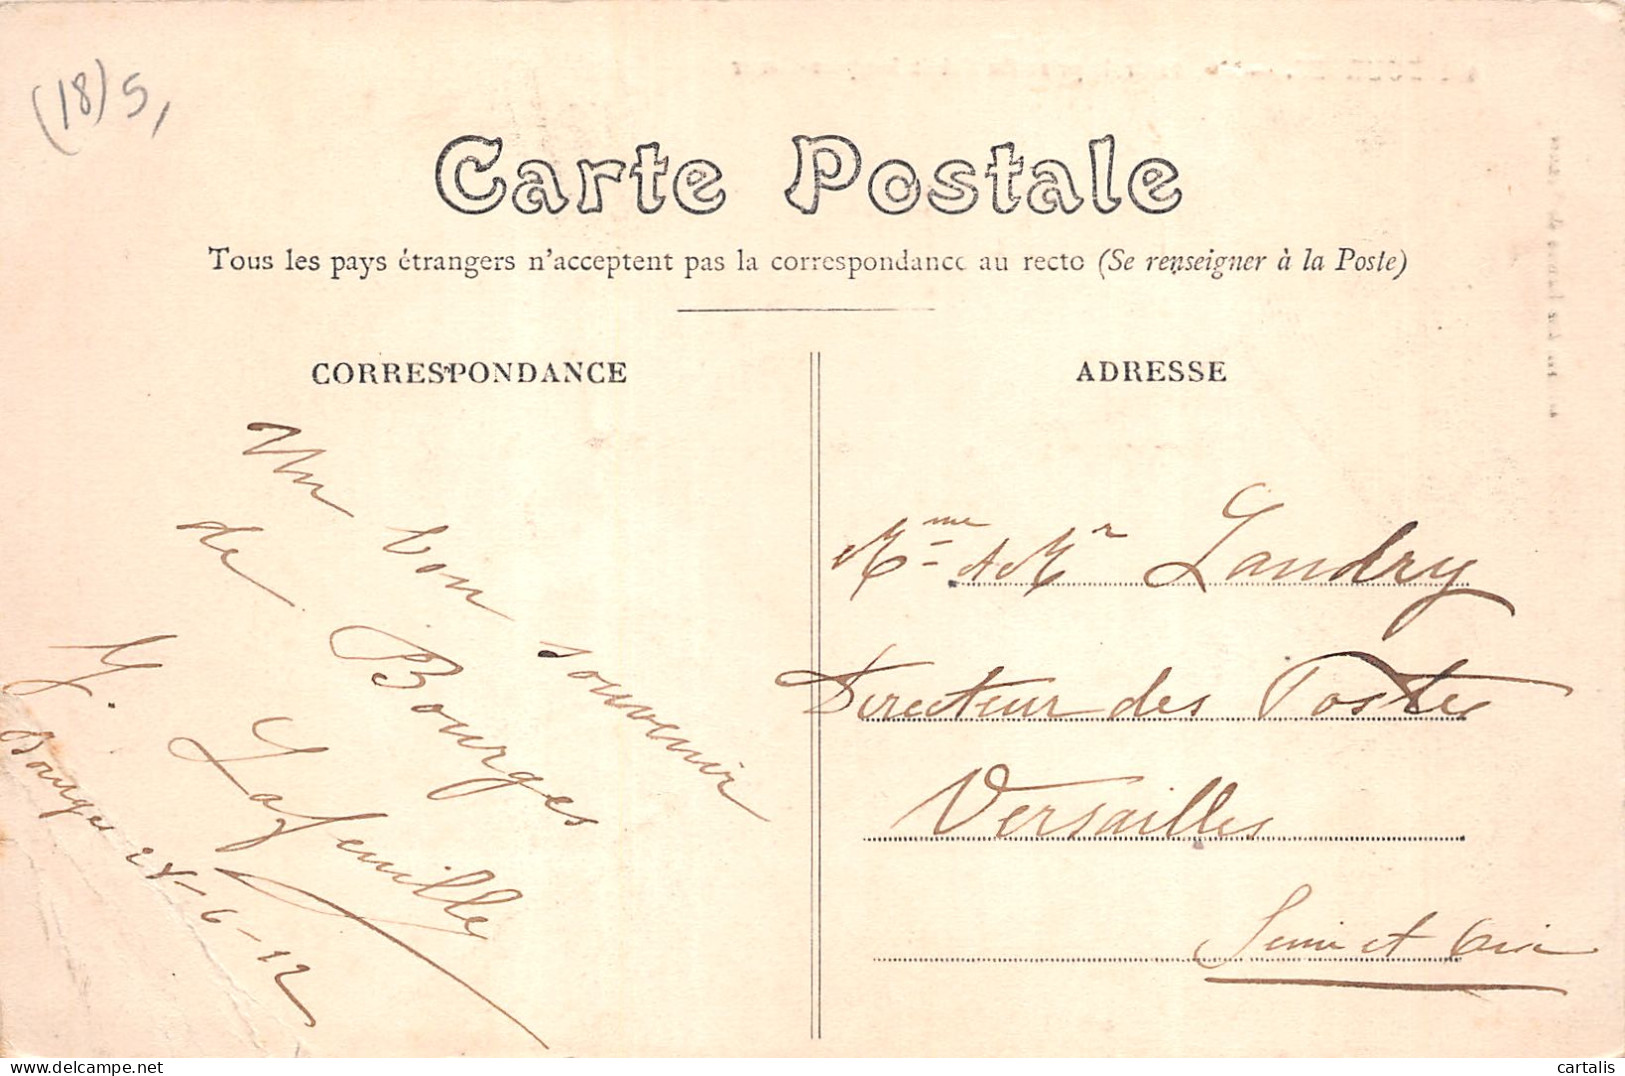 (18) 5,
Carte Postale
Tous les pays étrangers n'acceptent pas la correspondance au recto (Se renseigner à la Poste)
CORRESPONDANCE
Un bon souvenir
de Bourges
Lafeuille
Bourges 28-6-12
ADRESSE
Mme & Mr Landry
Directeur des Postes
Versailles
Seine et Oise
cartalis